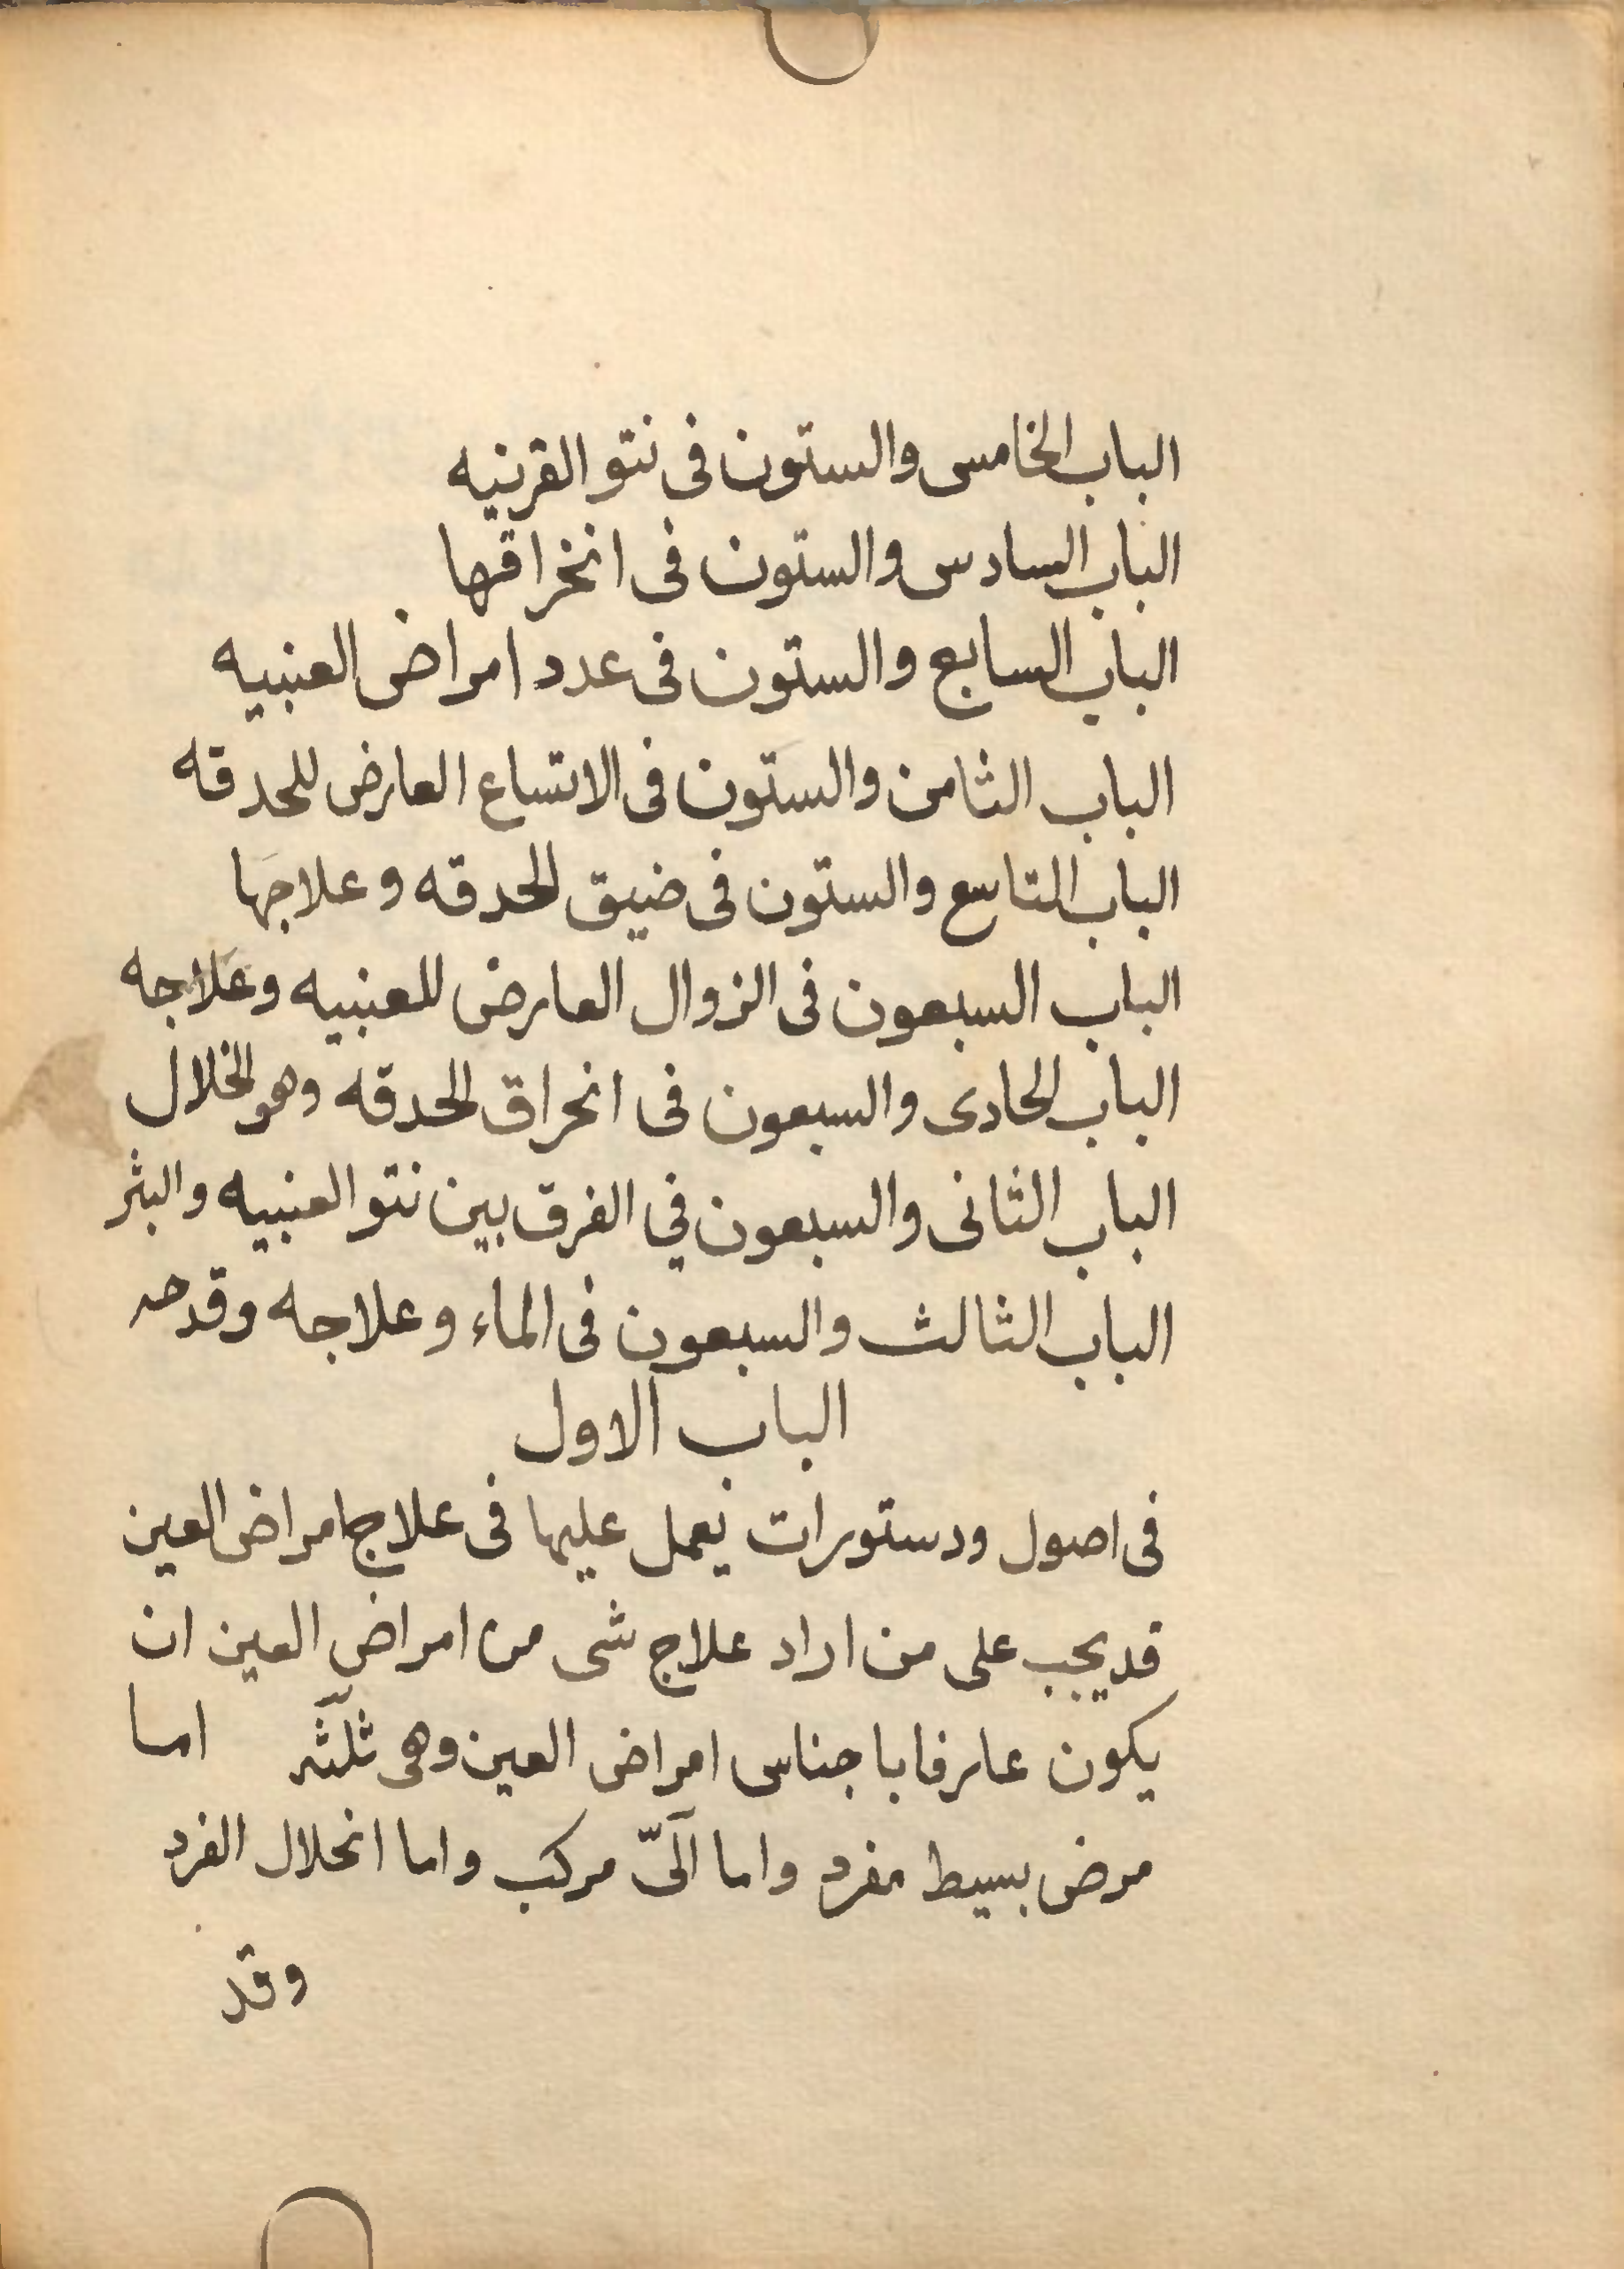 الباب الخامس والستون فى نتو القرنيه
الباب السادس والستون فى انخراقها
الباب السابع والستون فى عدد امراض العنبيه
الباب الثامن والستون فى الاتساع العارض للحدقه
الباب التاسع والستون فى ضيق الحدقه وعلاجَها
الباب السبعون فى الزوال العارض للعنبيه وعَلاجه
الباب الحادى والسبعون فى انحراق الحدقه وهو الخلال
الباب الثانى والسبعون في الفرق بين نتو العنبيه والبثر
الباب الثالث والسبعون فى الماء وعلاجه وقدحه
الباب الاول
فى اصول ودستورات يعمل عليها فى علاج امراض العين
قد يجب على من اراد علاج شى من امراض العين ان
يكون عارفا باجناس امراض العين وهى ثلثه اما
مرض بسيط مفرد واما آلىّ مركب واما انحلال الفرد
وقد